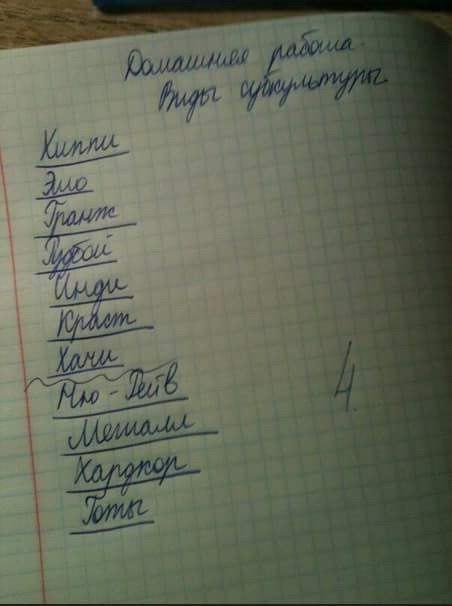 Домашняя работа.
Виды субкультуры
Хиппи
Эмо
Гранж
Рудбой
Инди
Краст
Хачи
Ню-Рейв
Металл
Хардкор
Готы
4.